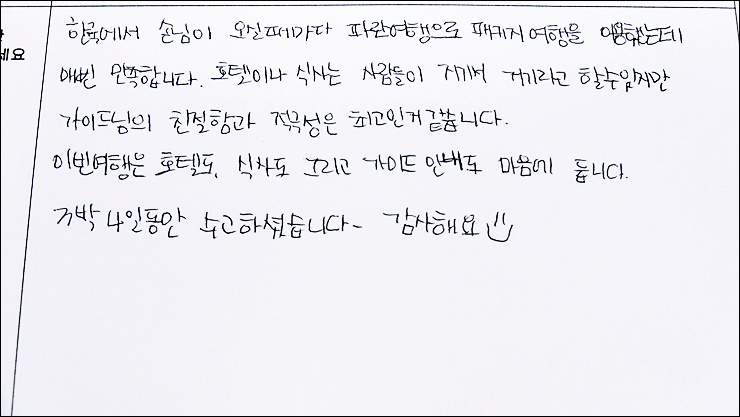 한국에서 손님이 오실때마다 파란여행으로 패키지여행을 이용했는데
매번 만족합니다. 호텔이나 식사는 사람들이 거기서 거기라고 할수있지만
세요
가이드님의 친절함과 적극성은 최고인거같습니다.
이번여행은 호텔도, 식사도 그리고 가이드 안내도 마음에 듭니다.
3박 4일동안 수고하셨습니다~ 감사해요